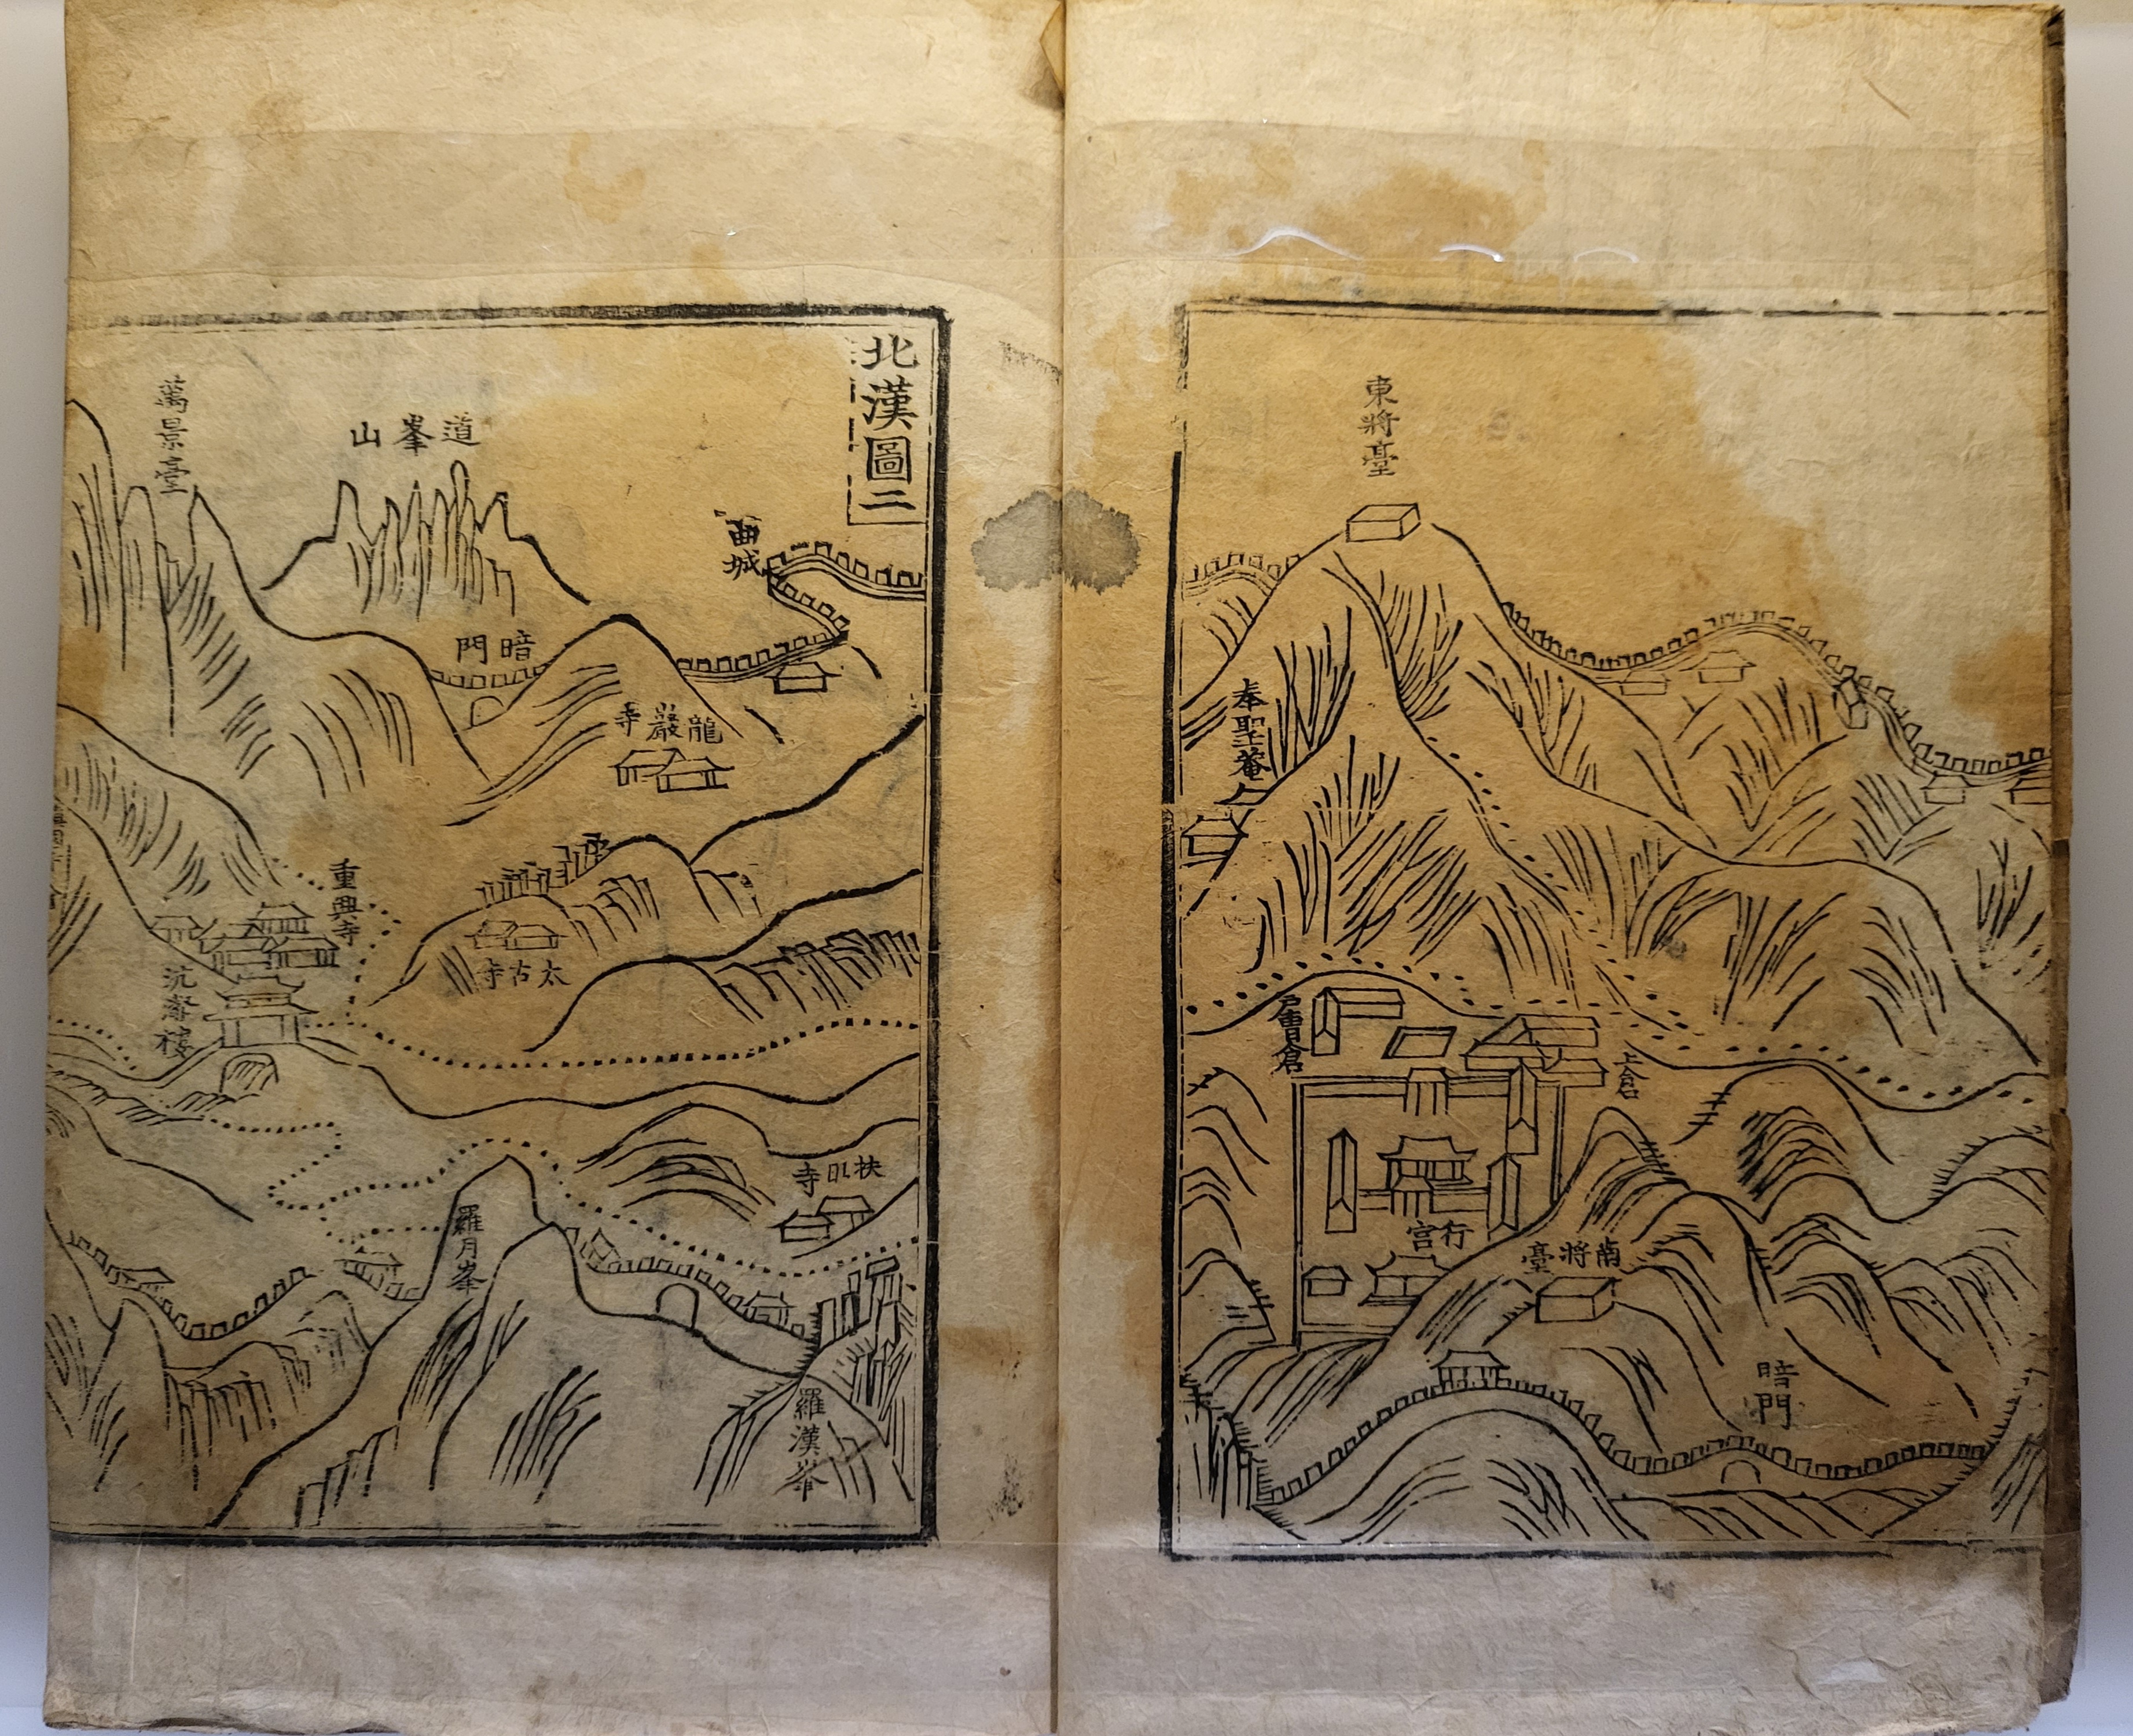 東將臺
奉聖菴
戶曹倉
上倉
行宮
南將臺
暗門
北漢圖二
曲城
道峯山
萬景臺
暗門
龍巖寺
重興寺
太古寺
扶旺寺
羅月峯
羅漢峯